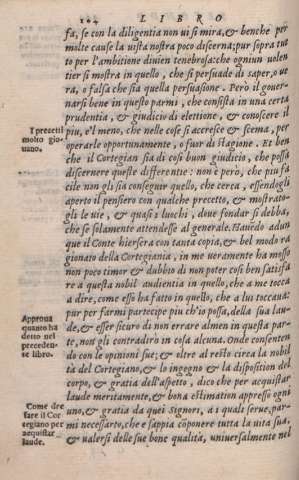 104 LIBRO
fa, se con la diligentia non ui si mira, & benche per
molte cause la uista nostra poco discerna; pur sopra tut
to per l'ambitione diuien tenebrosa: che ogniun uolen
tier si mostra in quello, che si persuade di saper, o ue
ra, o falsa che sia quella persuasione. Però il gouer-
narsi bene in questo parmi, che consista in una certa
prudentia, & giudicio di elettione, & conoscere il
I precetti
molto gio
uano.
piu, e'l meno, che nelle cose si accresce & scema, per
operarle opportunamente, o fuor di stagione. Et ben
che il Cortegian sia di cosi buon giudicio, che possa
discernere queste differentie: non è però, che piu fa
cile non gli sia conseguir quello, che cerca, essendogli
aperto il pensiero con qualche precetto, & mostrato-
gli le uie, & quasi i luochi, doue fondar si debba,
che se solamente attendesse al generale. Hauēdo adun
que il Conte hiersera con tanta copia, & bel modo ra
gionato della Cortegiania, in me ueramente ha mosso
non poco timor & dubbio di non poter cosi ben satisfa
re a questa nobil audientia in quello, che a me tocca
a dire, come esso ha fatto in quello, che a lui toccaua:
pur per farmi participe piu ch'io possa, della sua lau-
Approua
quanto ha
detto nel
precedente
te libro.
de, & esser sicuro di non errare almen in questa par
te, non gli contradiro in cosa alcuna. Onde consenten
do con le opinioni sue; & oltre al resto circa la nobil
tà del Cortegiano, & lo ingegno & la disposition del
corpo, & gratia dell'aspetto, dico che per acquistar
laude meritamente, & bona estimation appresso ogni
Come dee
fare il Cor
tegiano per
acquistar
laude.
uno, & gratia da quei Signori, a i quali serue, par-
mi necessario, che e sappia cōponere tutta la uita sua,
& ualersi delle sue bone qualità, uniuersalmente nel